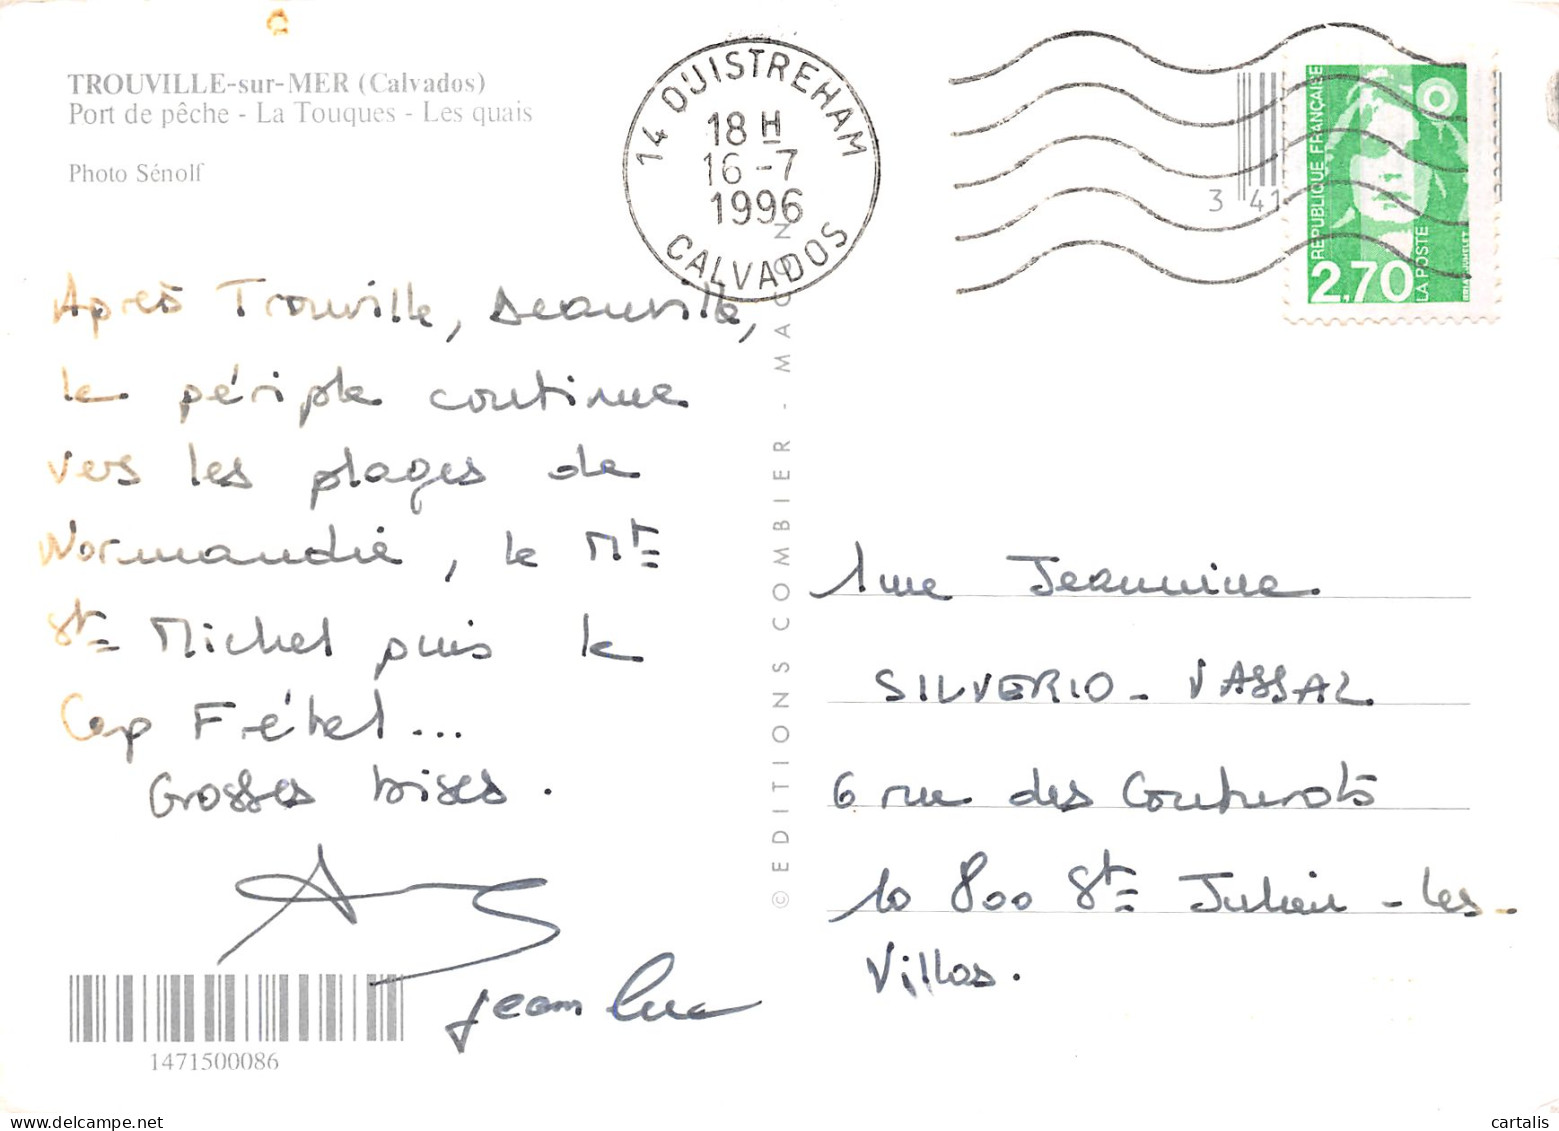 TROUVILLE-sur-MER (Calvados)
Port de pêche - La Touques - Les quais
Photo Sénolf
14 OUISTREHAM
18 H
16 -7
1996
CALVADOS
3 41
RÉPUBLIQUE FRANÇAISE
2,70
LA POSTE
Après Trouville, Deauville,
le périple continue
vers les plages de
Normandie, le Mt
St Michel puis le
Cap Fréhel...
Grosses bises.
jean luc
1471500086
© EDITIONS COMBIER - MACON
Mme Jeannine
SILVERIO - VASSAL
6 rue des
10 800 St Julien - les -
Villas.
cartalis